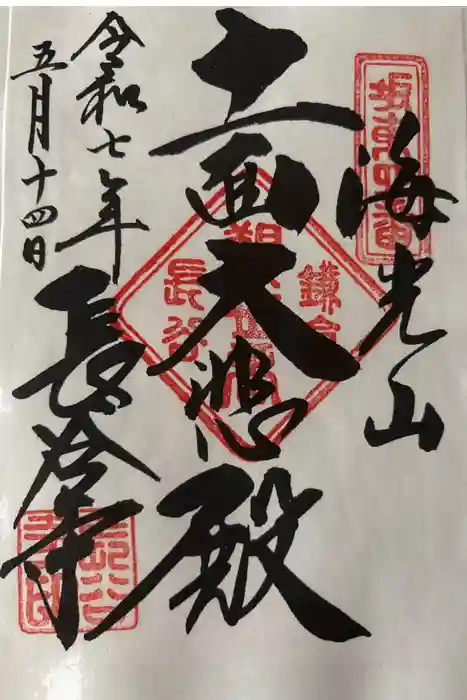 坂東四番
海光山
十一面大悲殿
鎌倉
長谷
令和七年
五月十四日
長谷寺
長谷寺印